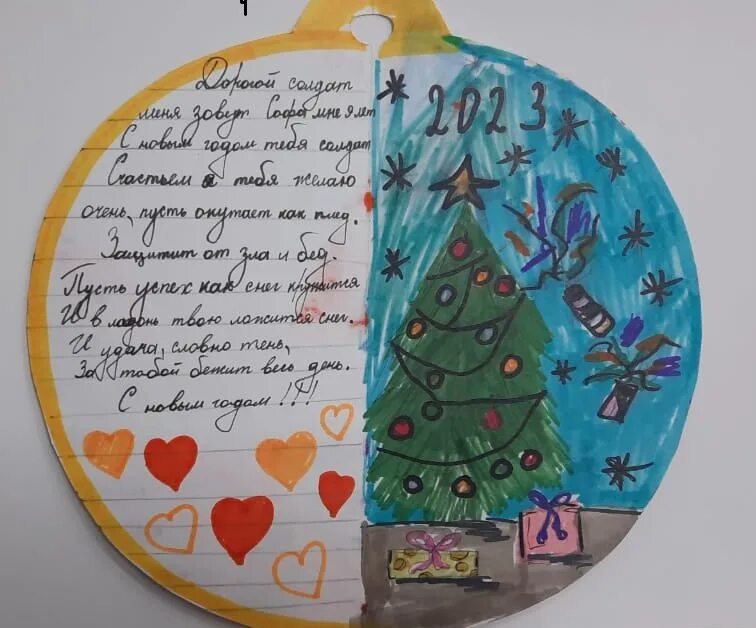 Дорогой солдат
меня зовут Софа мне 9 лет
С новым годом тебя солдат
Счастьем я тебя желаю
очень, пусть окутает как плед.
Защитит от зла и бед.
Пусть успех как снег кружится
И в ладонь твою ложится снег.
И удача, словно тень,
За тобой бежит весь день.
С новым годом!!!!
2023